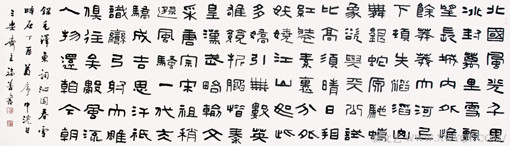 北國風光千里
冰封萬里雪飄
望長城內外惟
餘莽莽大河上
下頓失滔滔山
舞銀蛇原馳蠟
象欲與天公試
比高須晴日看
紅裝素裹分外
妖嬈江山如此
多嬌引無數英
雄競折腰惜秦
皇漢武略輸文
采唐宗宋祖稍
遜風騷一代天
驕成吉思汗祇
識彎弓射大雕
俱往矣數風流
人物還看今朝
錄毛澤東詞沁園春雪
時在丁酉中浣日